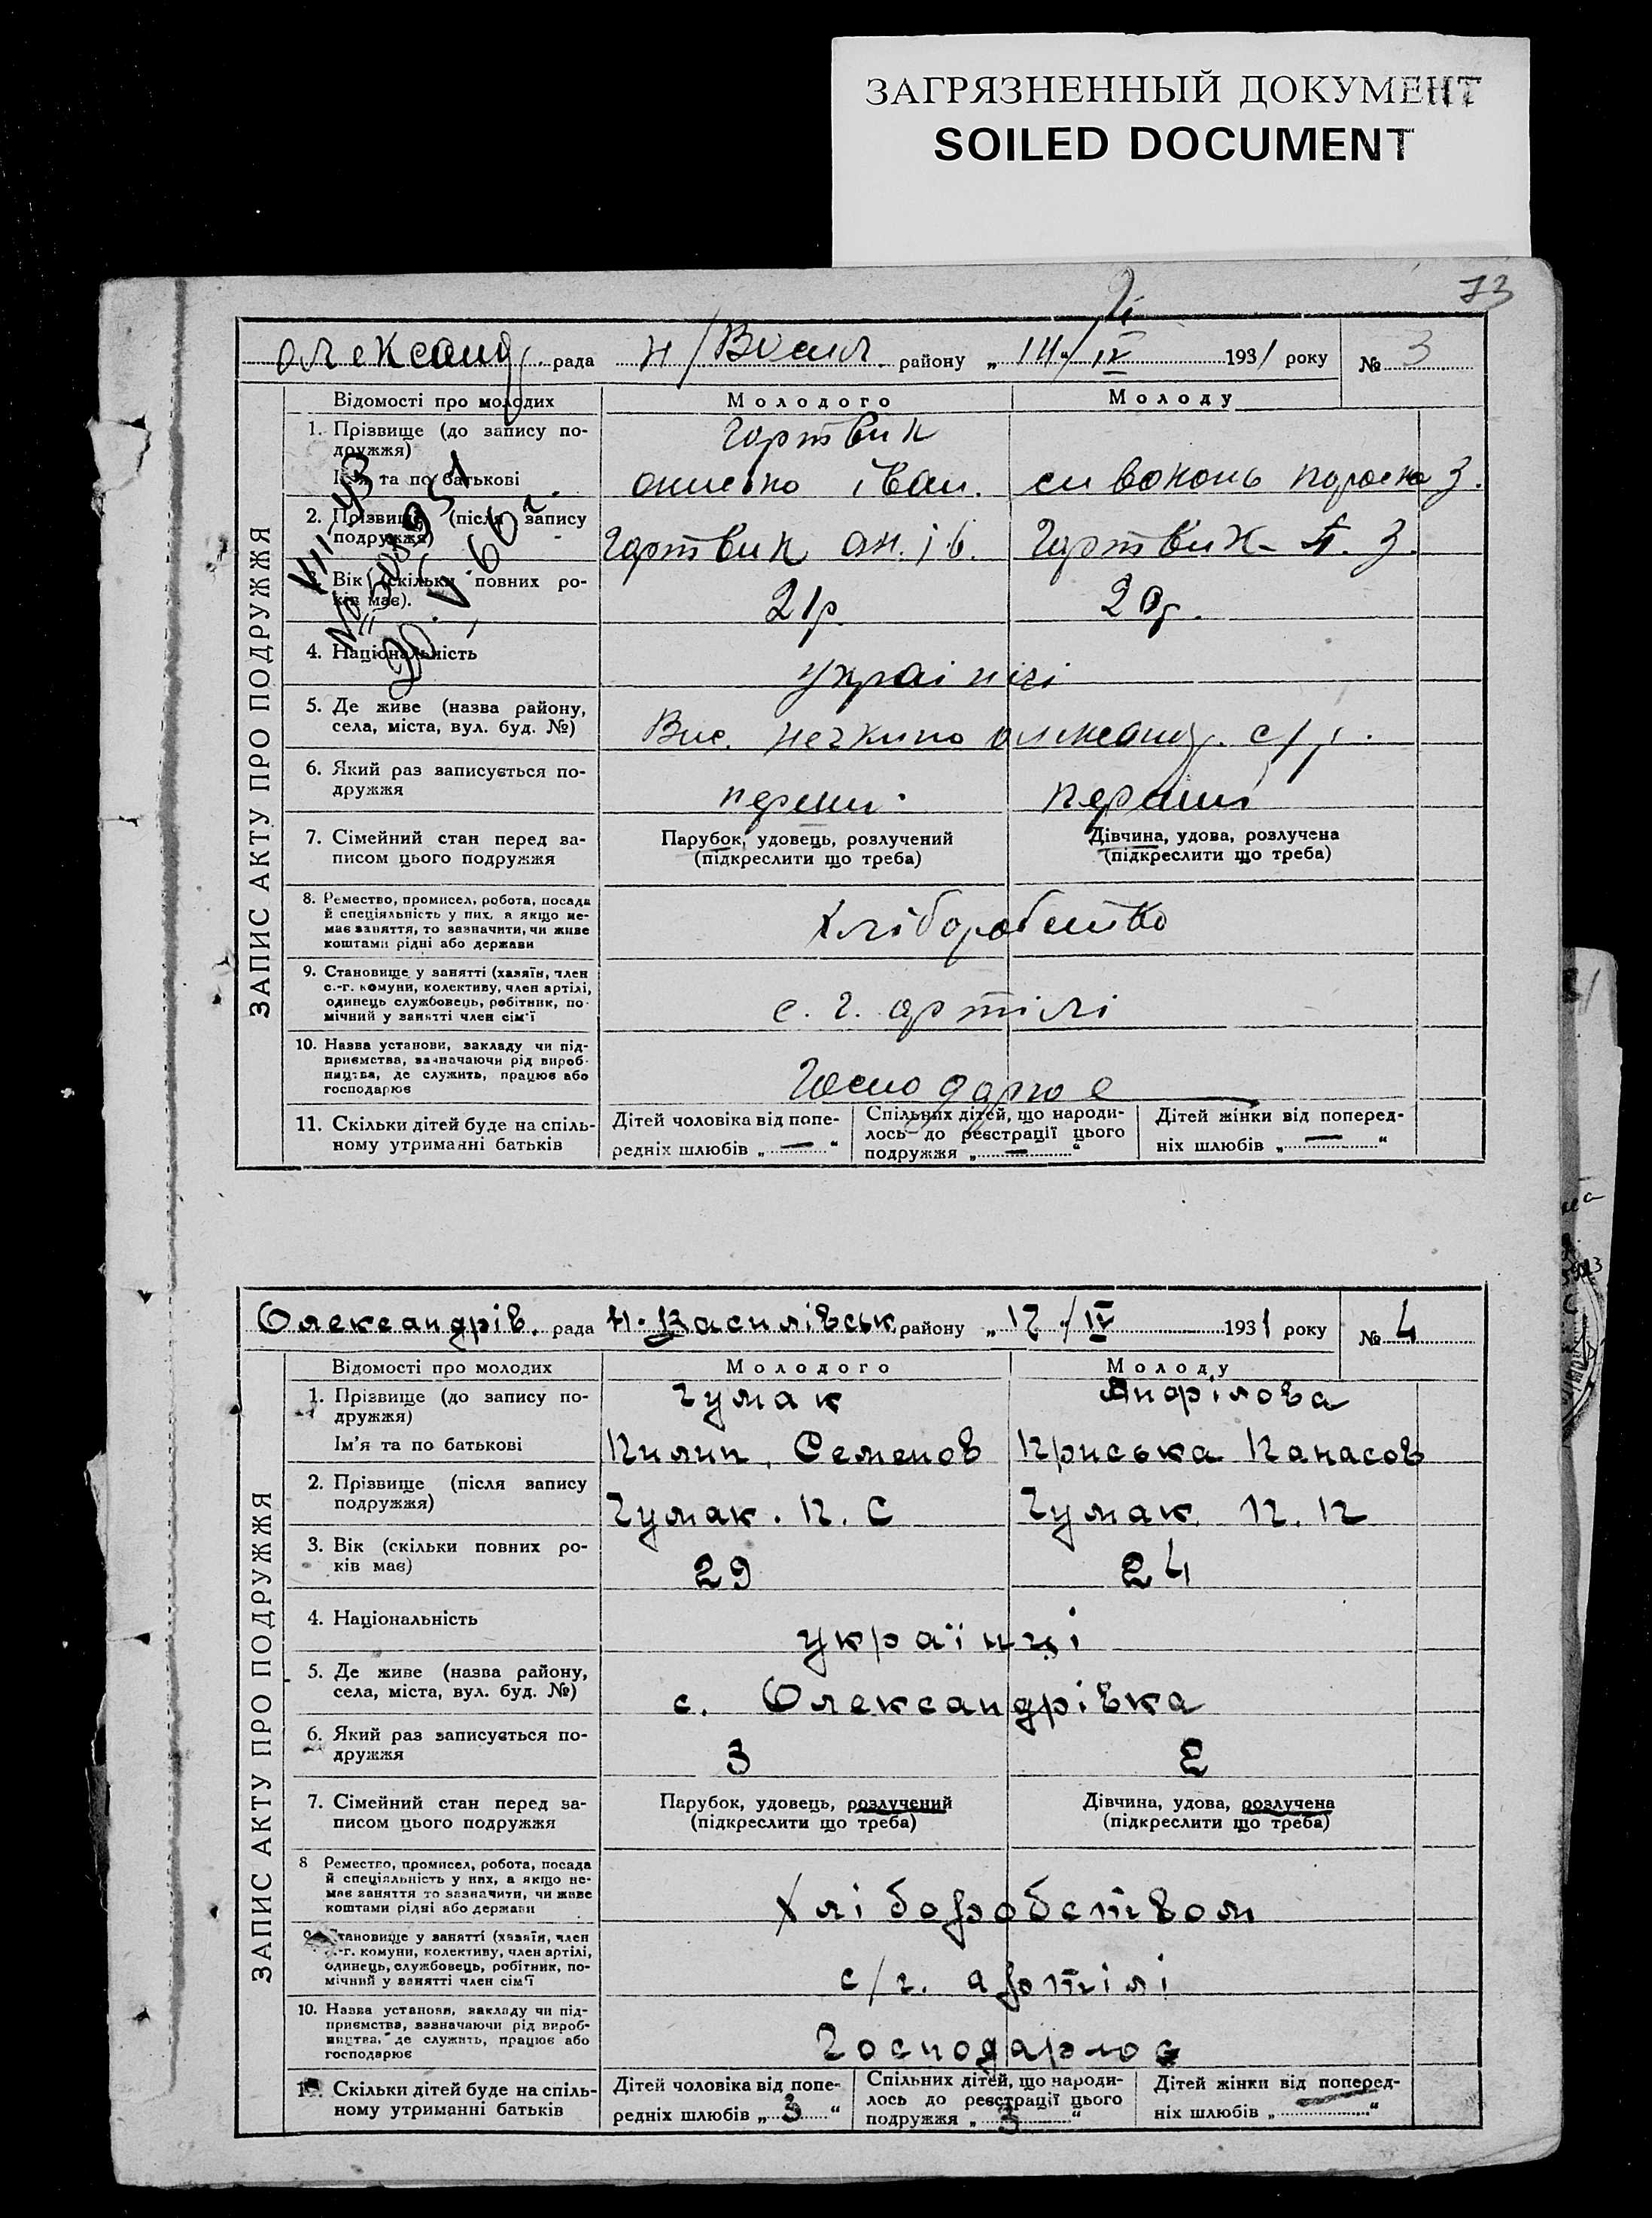 ЗАГРЯЗНЕННЫЙ ДОКУМЕНТ
SOILED DOCUMENT
73
Олександ. рада Н/Васил району „14"/IV 1931 року № 3
ЗАПИС АКТУ ПРО ПОДРУЖЖЯ
Відомості про молодих Молодого Молоду
1. Прізвище (до запису по-
дружжя)
Гортвик
Ім'я та по батькові Онисько Іван. Сивоконь Пораска З.
2. Прізвище (після запису
подружжя) Гортвик Он. Ів. Гортвик П. З.
3. Вік (скільки повних ро-
ків має). 21р. 20р.
4. Національність українці
5. Де живе (назва району,
села, міста, вул. буд. №) Вис. Нечкино Олександ. с/р.
6. Який раз записується по-
дружжя перший перший
7. Сімейний стан перед за-
писом цього подружжя
Парубок, удовець, розлучений
(підкреслити що треба)
Дівчина, удова, розлучена
(підкреслити що треба)
8. Ремество, промисел, робота, посада
й спеціяльність у них, а якщо не-
має заняття, то зазначити, чи живе
коштами рідні або держави
Хліборобство
9. Становище у занятті (хазяїн, член
с.-г. комуни, колективу, член артілі,
одинець службовець, робітник, по-
мічний у занятті член сім'ї
с. г. артілі
10. Назва установи, закладу чи під-
приємства, зазначаючи рід вироб-
ництва, де служить, працює або
господарює
Господарює
11. Скільки дітей буде на спіль-
ному утриманні батьків
Дітей чоловіка від попе-
редніх шлюбів „—"
Спільних дітей, що народи-
лось до реєстрації цього
подружжя „—"
Дітей жінки від поперед-
ніх шлюбів „—"
Олександрів. рада Н. Василівськ району „12"/IV 1931 року № 4
ЗАПИС АКТУ ПРО ПОДРУЖЖЯ
Відомості про молодих Молодого Молоду
1. Прізвище (до запису по-
дружжя)
Чумак Анфілова
Ім'я та по батькові Пилип. Семенов Приська Панасов
2. Прізвище (після запису
подружжя) Чумак. П. С Чумак. П. П
3. Вік (скільки повних ро-
ків має) 29 24
4. Національність українці
5. Де живе (назва району,
села, міста, вул. буд. №) с. Олександрівка
6. Який раз записується по-
дружжя 3 2
7. Сімейний стан перед за-
писом цього подружжя
Парубок, удовець, розлучений
(підкреслити що треба)
Дівчина, удова, розлучена
(підкреслити що треба)
8 Ремество, промисел, робота, посада
й спеціяльність у них, а якщо не-
має заняття то зазначити, чи живе
коштами рідні або держави
Хліборобством
Становище у занятті (хазяїн, член
с.-г. комуни, колективу, член артілі,
одинець, службовець, робітник, по-
мічний у занятті член сім'ї
с/г. артілі
10. Назва установи, закладу чи під-
приємства, зазначаючи рід вироб-
ництва, де служить, працює або
господарює
Господарює
Скільки дітей буде на спіль-
ному утриманні батьків
Дітей чоловіка від попе-
редніх шлюбів „3"
Спільних дітей, що народи-
лось до реєстрації цього
подружжя „3"
Дітей жінки від поперед-
ніх шлюбів „—"